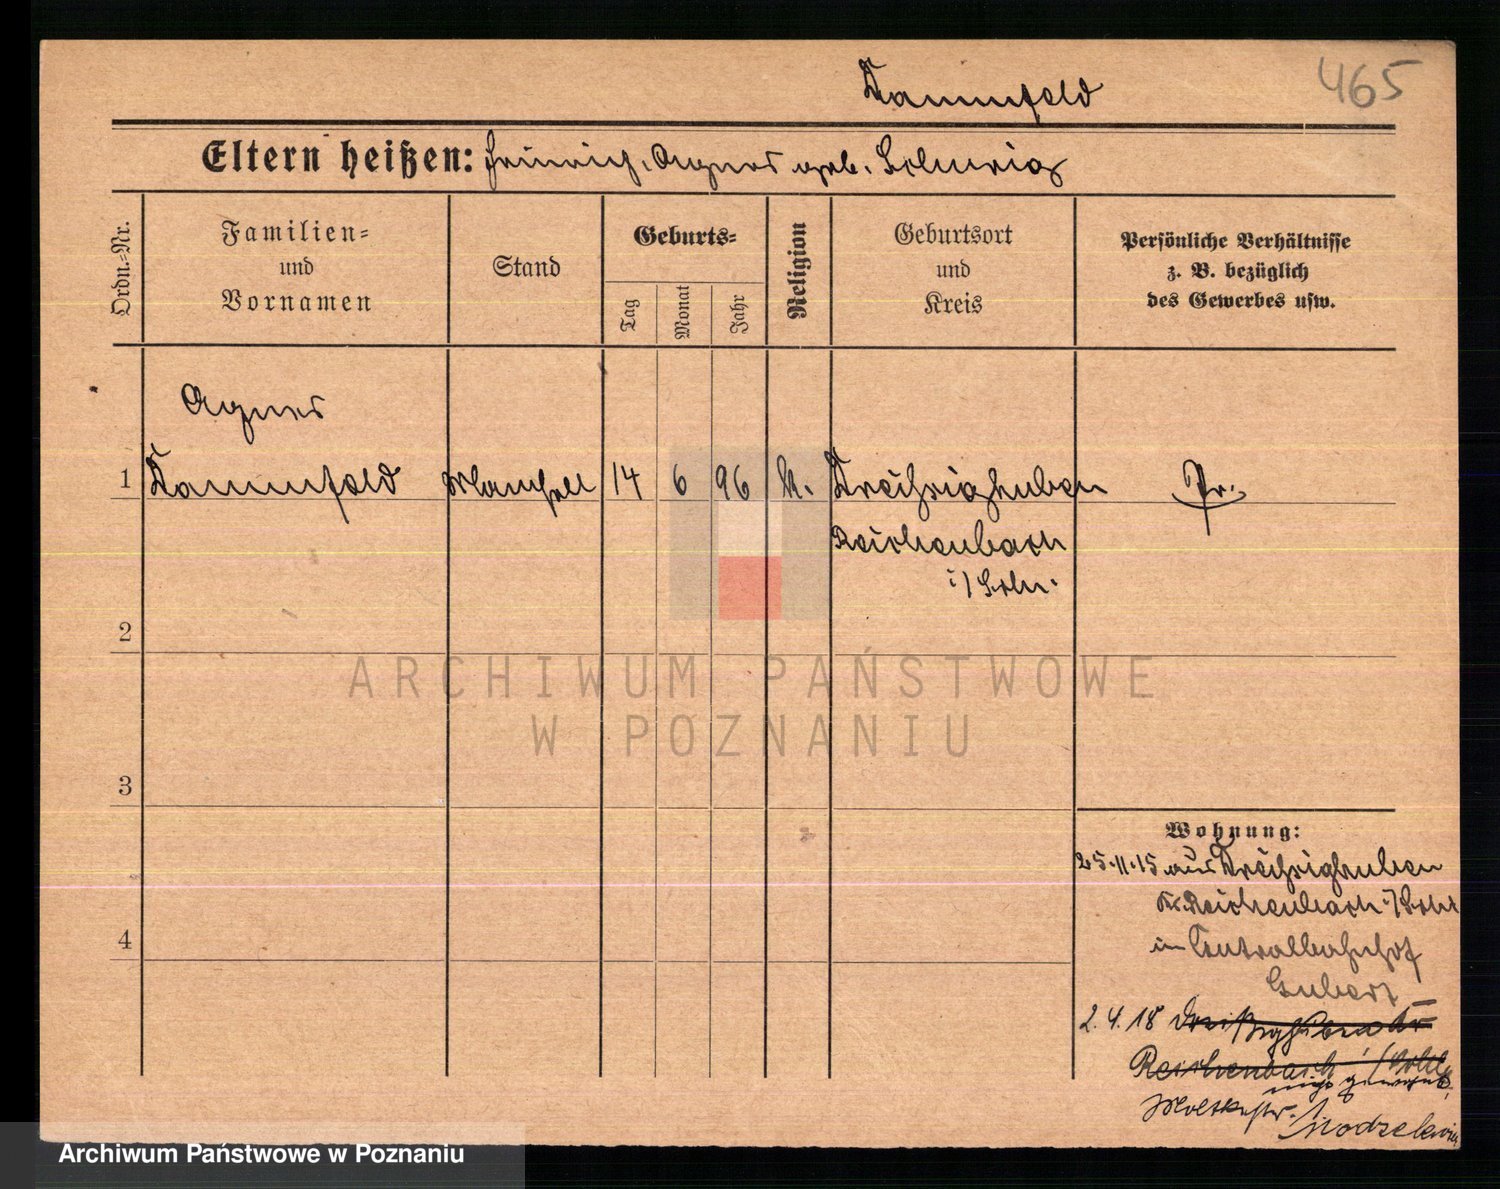 465
Tannenfeld
Eltern heißen: Heinrich, Agnes geb. Scholz
Ordn.-Nr.
Familien-
und
Vornamen
Stand
Geburts-
Tag
Monat
Jahr
Religion
Geburtsort
und
Kreis
Persönliche Verhältnisse
z. B. bezüglich
des Gewerbes usw.
Agnes
1 Tannenfeld Mamsell 14 6 96 k. Dreißighuben Pr.
Reichenbach
i/Schl.
2
3
4
ARCHIWUM PAŃSTWOWE
W POZNANIU
Wohnung:
25.11.15 aus Dreißighuben
Kr. Reichenbach i/Schl
im Centralbahnhof
2.4.18 Dreißighuben Kr
Reichenbach i/Schl
Moltkestr. 1
Archiwum Państwowe w Poznaniu